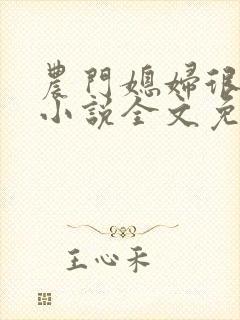 農門媳婦很
小說全文免
王心禾